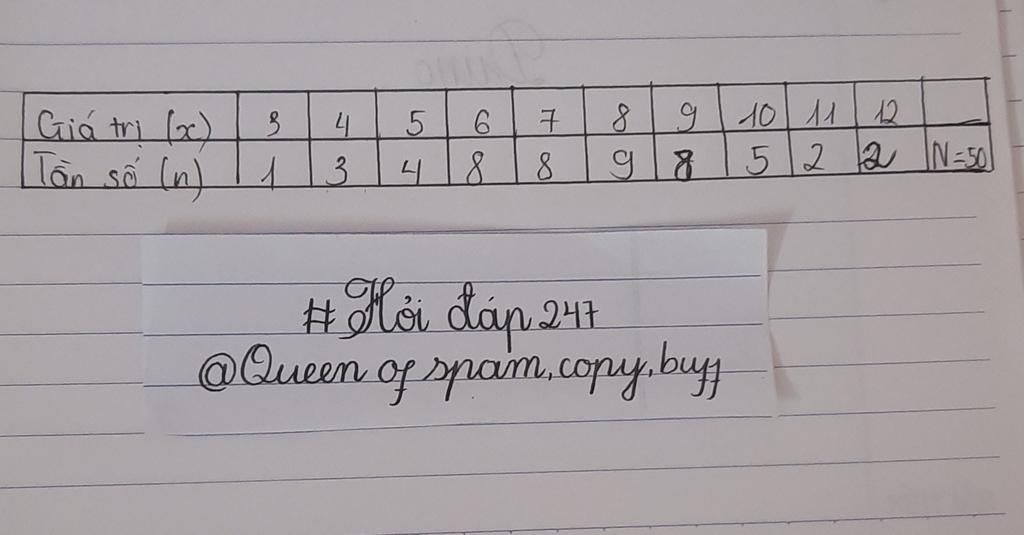 Giá trị (x) 3 4 5 6 7 8 9 10 11 12
Tần số (n) 1 3 4 8 8 9 8 5 2 2 N=50
#Hỏi đáp 247
@Queen of spam,copy,buff